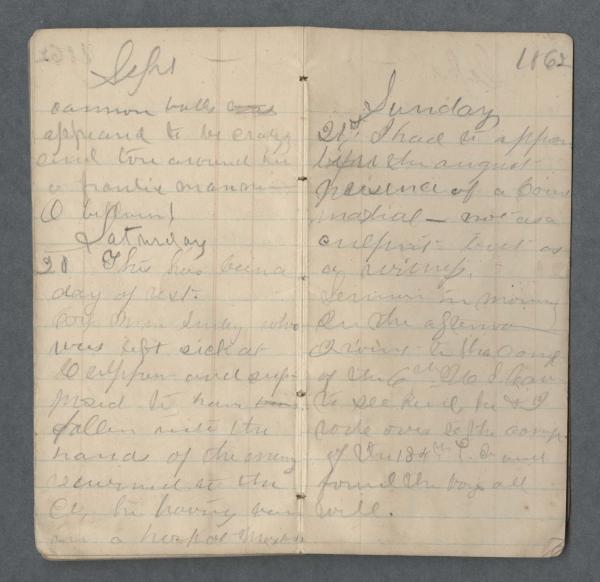 Sept
cannon balls
appeared to be crazy
and tore around in
a frantic manner
O
Saturday
20 This has been a
day of rest.
who
was left sick at
and sup-
posed to have
fallen into the
hands of the enemy
returned to the
Co, he having been
in a hospital
1862
Sunday
21st I had to appear
before the august
presence of a Court
martial — not as a
culprit but as
a witness.
Sermon in morning
In the afternoon
I went to the camp
of the 6th U S Cav
to see he & I
rode over to the camp
of the 134th P. V. and
found the boys all
well.